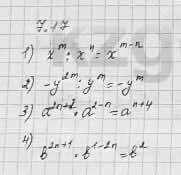 7.17
1) x^m : x^n = x^{m-n}
2) -y^{2m} : y^m = -y^m
3) a^{2n+2} : a^{2-n} = a^{n+4}
4)
b^{2n+1} · b^{1-2n} = b^2